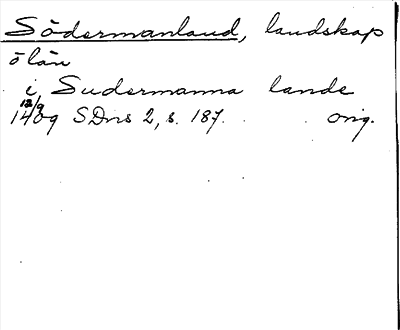 Södermanland, landskap
o län
i Sudermanna lande
12/9
1409 SDns 2, s. 187. orig.